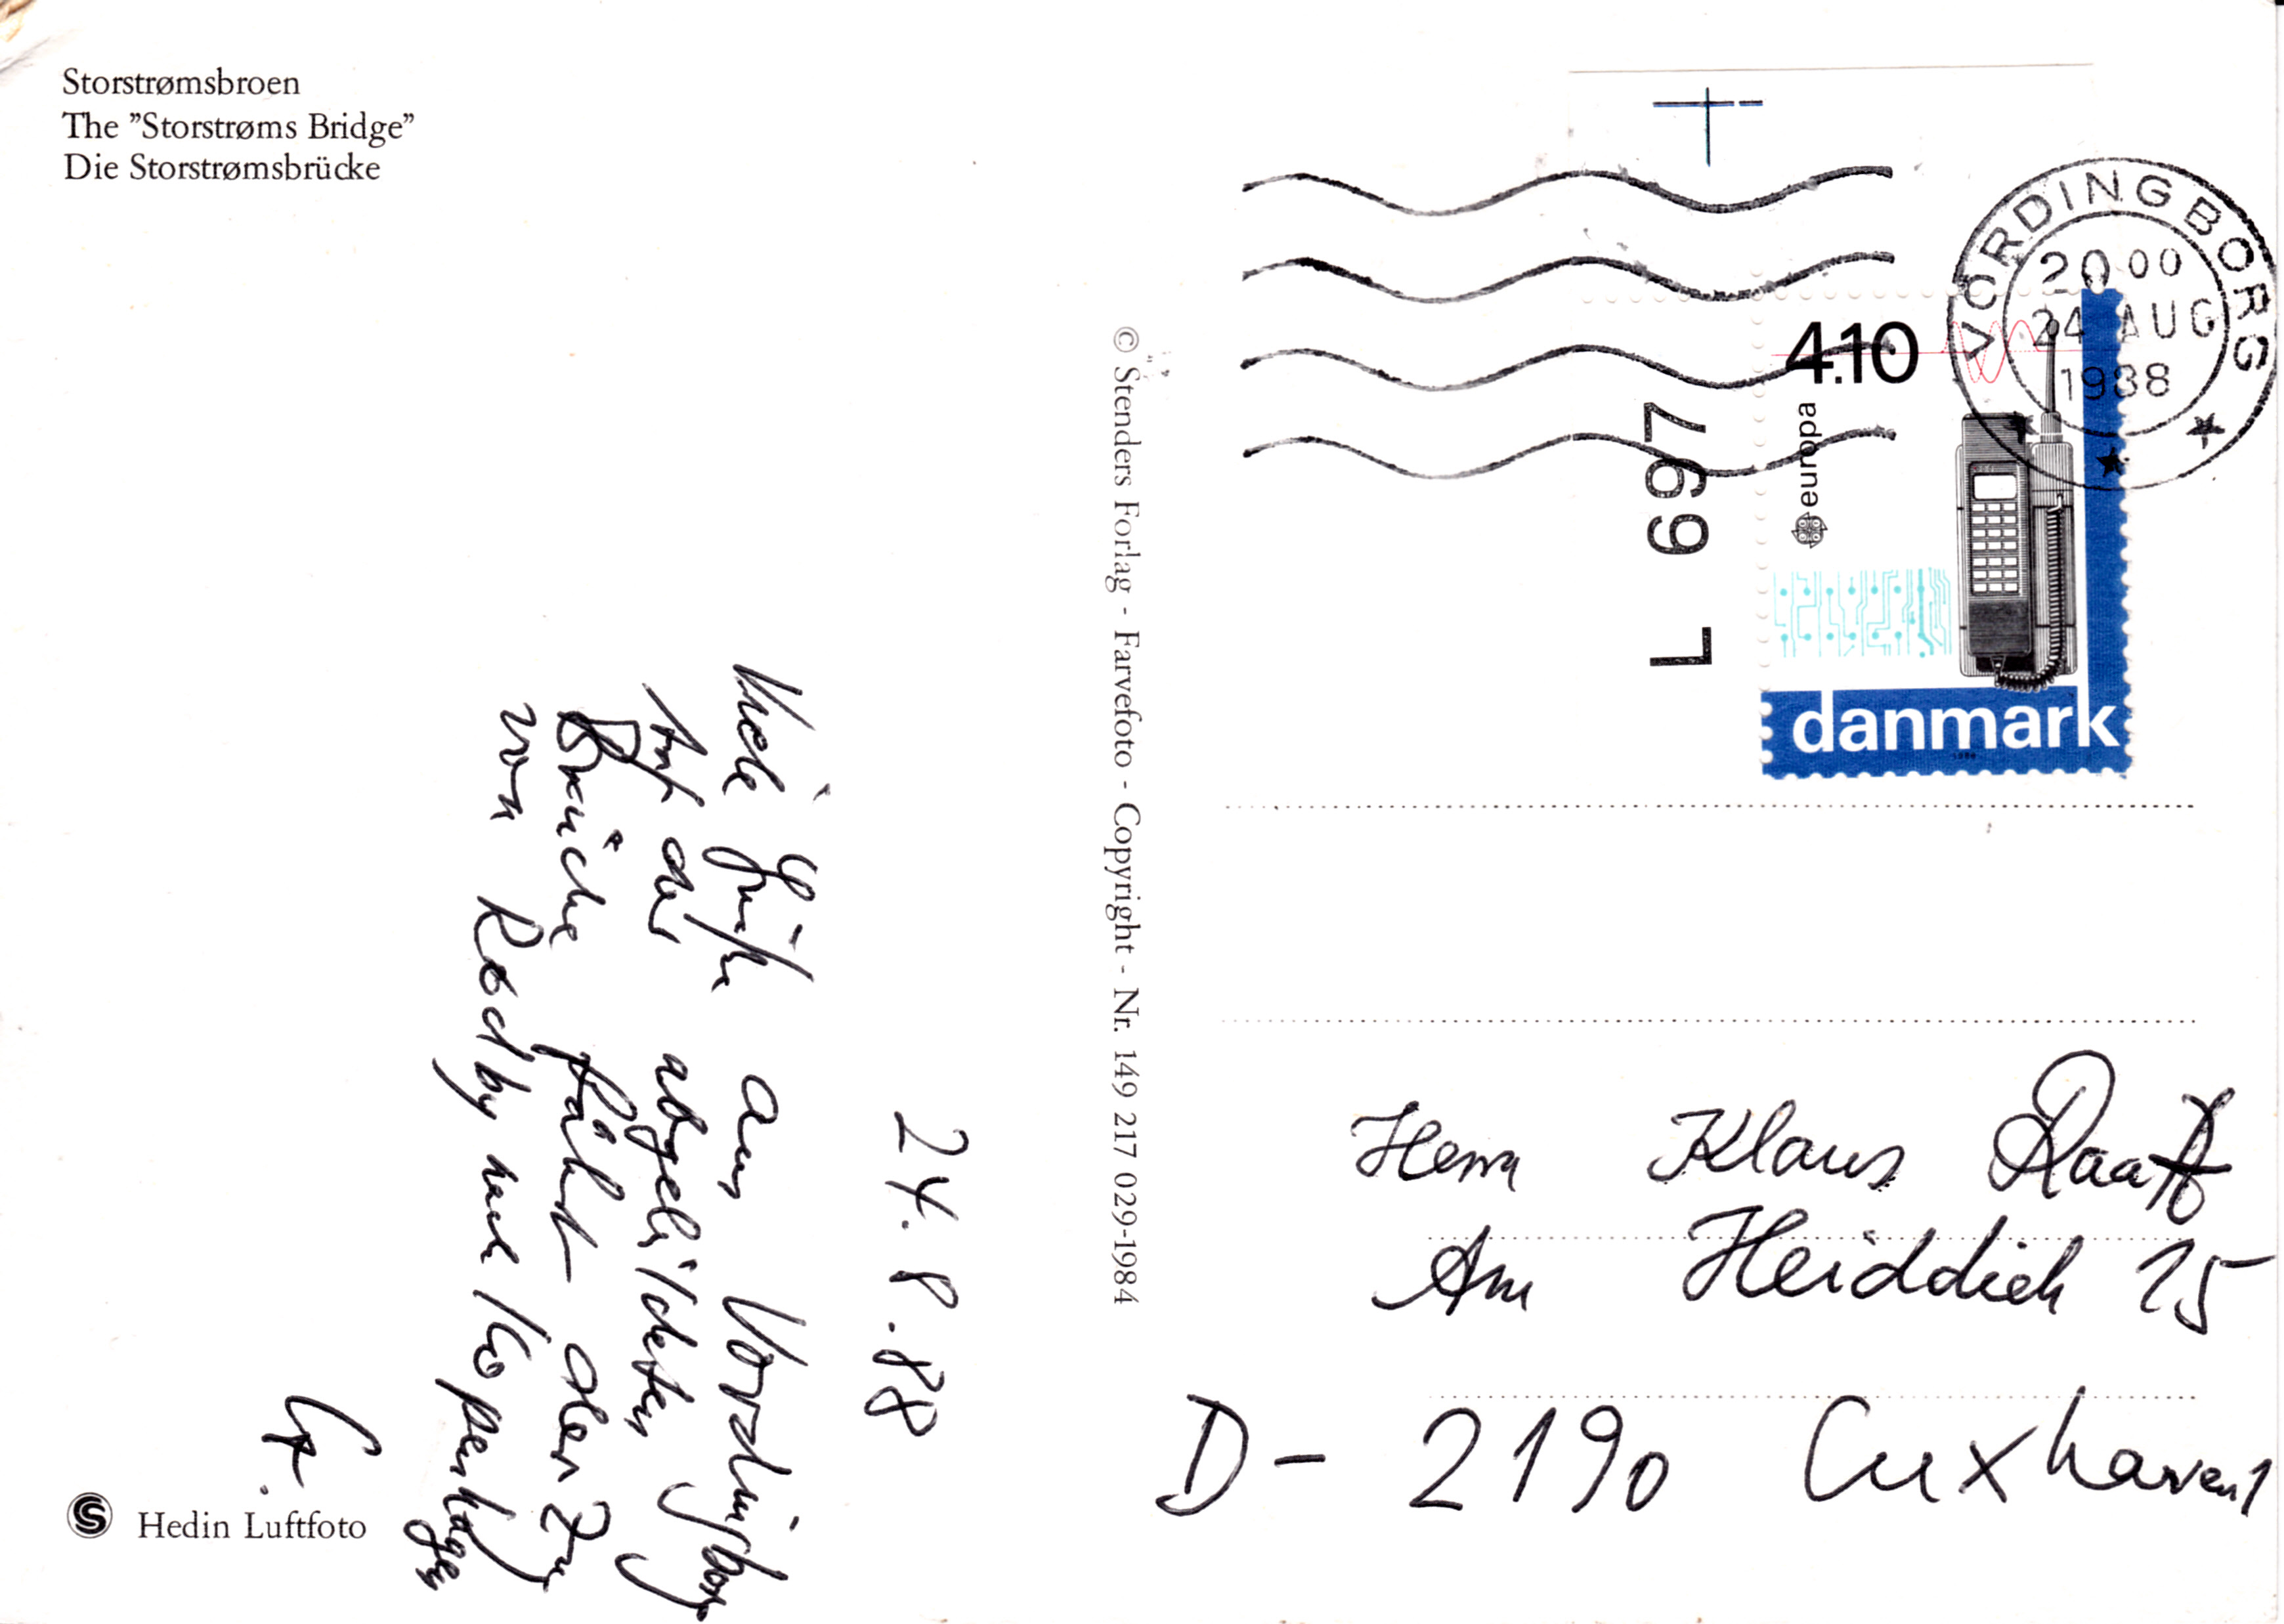 Storstrømsbroen
The ”Storstrøms Bridge”
Die Storstrømsbrücke
24.8.88
Viele Grüße aus Vordingborg
Auf der abgebildeten
Brücke fährt der Zug
von Rødby nach Kopenhagen
Hedin Luftfoto
© Stenders Forlag - Farvefoto - Copyright - Nr. 149 217 029-1984
VORDINGBORG
20 00
24 AUG
1988
L 697
4.10
europa
danmark
1988
Herrn Klaus Raatz
Am Heiddiek 15
D - 2190 Cuxhaven 1